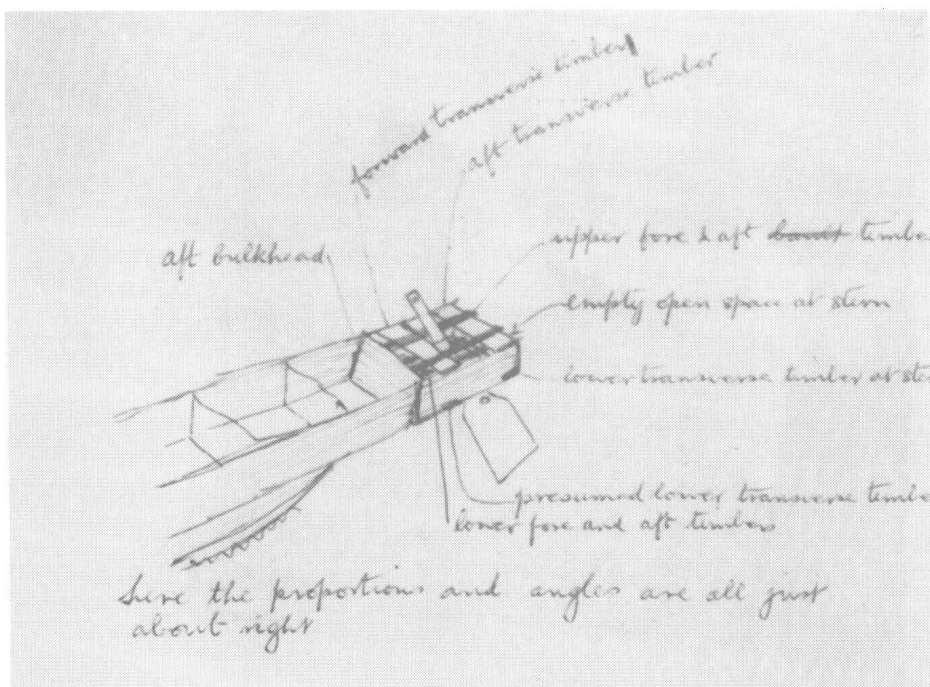 forward transverse timber
aft transverse timber
aft bulkhead
upper fore & aft timbe
empty open space at stern
lower transverse timber at ste
presumed lower transverse timbe
lower fore and aft timbers
Sure the proportions and angles are all just
about right